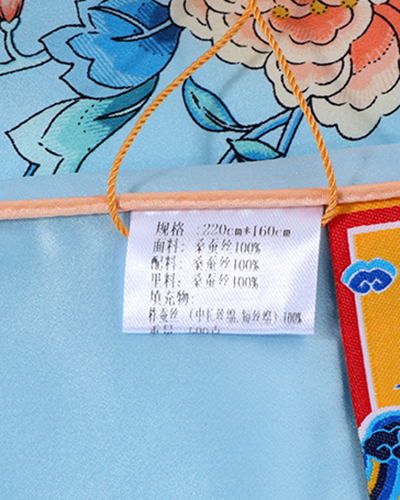 规格 :220cm*160cm
面料: 桑蚕丝100%
配料: 桑蚕丝100%
里料: 桑蚕丝100%
填充物:
柞蚕丝 (中长丝绵,短丝绵) 100%
重量 500克